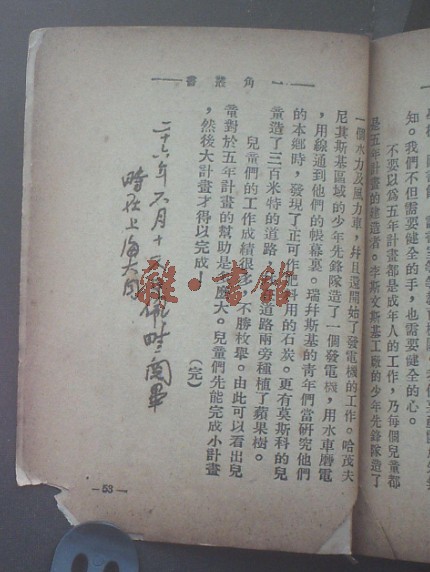 一角叢書
知。我們不但需要健全的手,也需要健全的心。
不要以爲五年計畫都是成年人的工作,乃每個兒童都
是五年計畫的建造者。李斯文斯基工廠的少年先鋒隊造了
一個水力及風力車,幷且還開始了發電機的工作。哈茂夫
尼其斯基區域的少年先鋒隊造了一個發電機,用水車磨電
,用線通到他們的帳幕裏。瑞幷斯基的青年們當研究他們
的本鄉時,發現了正可作肥料用的石炭。更有莫斯科的兒
童造了三百米特的道路,道路兩旁種植了蘋果樹。
兒童們的工作成績很多,不勝枚舉。由此可以看出兒
童對於五年計畫的幫助是多麽大。兒童們先能完成小計畫
,然後大計畫才得以完成!
(完)
二十六年六月十 閱畢
時在上海大同
—53—
雜·書館